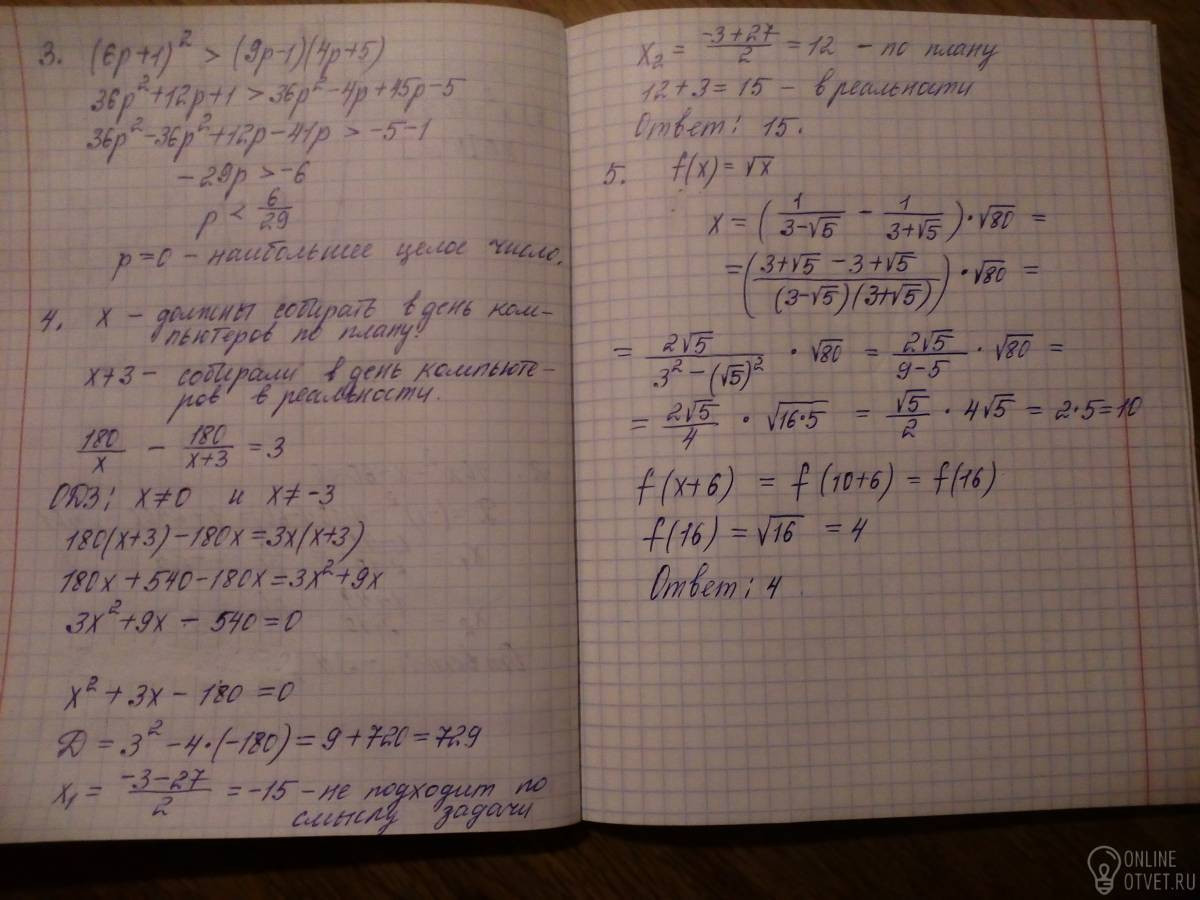 3. (6p+1)² > (9p-1)(4p+5)
36p²+12p+1 > 36p²-4p+45p-5
36p²-36p²+12p-41p > -5-1
-29p > -6
p < 6/29
p=0 - наибольшее целое число.
4. x - должны собирать в день ком-
пьютеров по плану.
x+3 - собирали в день компьюте-
ров в реальности.
180/x - 180/(x+3) = 3
ОДЗ: x≠0 и x≠-3
180(x+3)-180x=3x(x+3)
180x+540-180x=3x²+9x
3x²+9x-540=0
x²+3x-180=0
D=3²-4·(-180)=9+720=729
x₁ = (-3-27)/2 = -15 - не подходит по
смыслу задачи
x₂ = (-3+27)/2 = 12 - по плану
12+3=15 - в реальности
Ответ: 15.
5. f(x)=√x
x = (1/(3-√5) - 1/(3+√5))·√80 =
= ((3+√5-3+√5)/((3-√5)(3+√5)))·√80 =
= 2√5/(3²-(√5)²) · √80 = 2√5/(9-5) · √80 =
= 2√5/4 · √(16·5) = √5/2 · 4√5 = 2·5=10
f(x+6) = f(10+6) = f(16)
f(16) = √16 = 4
Ответ: 4
ONLINE
OTVET.RU